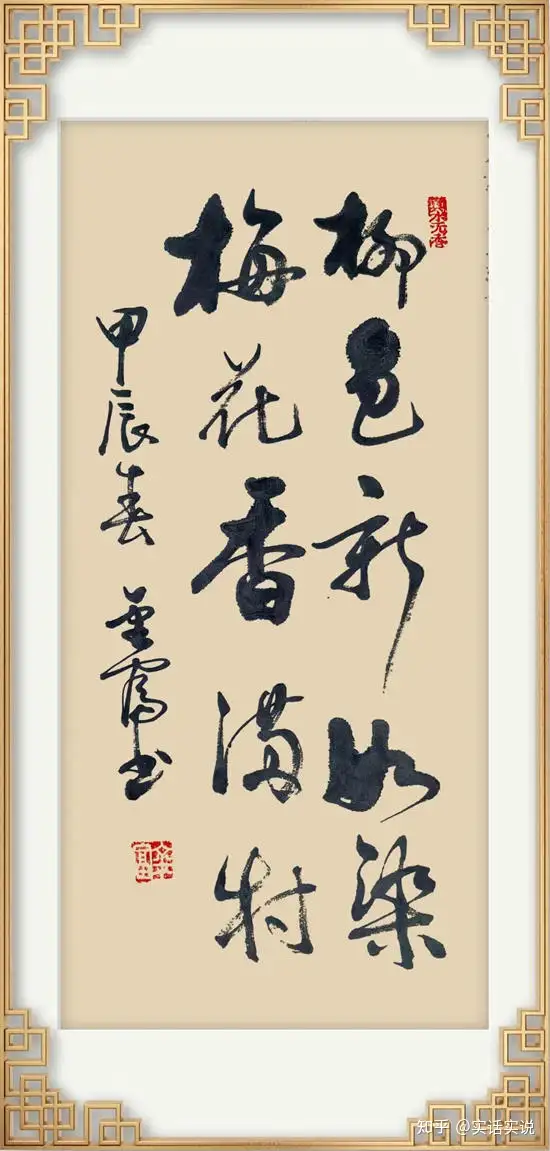 柳色新如染
梅花香满村
甲辰春 金富书
知乎 @实话实说